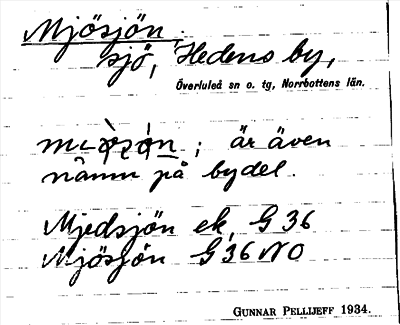 Mjösjön.
sjö, Hedens by,
Överluleå sn o. tg, Norrbottens län.
; är även
namn på bydel.
Mjedsjön ek. G 36
Mjösjön G 36 NO
GUNNAR PELLIJEFF 1934.